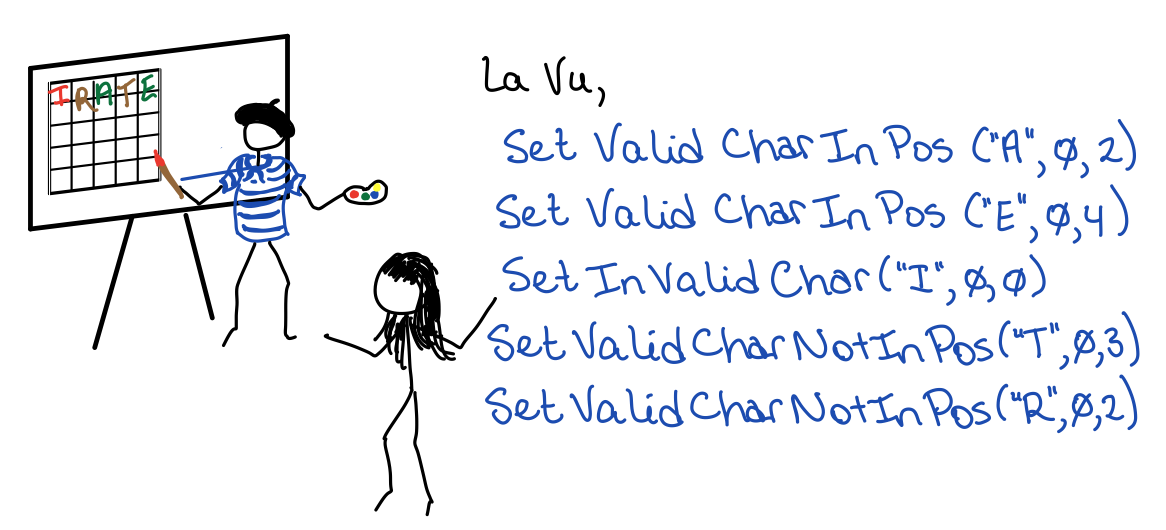 IRATE
La Vu,
Set Valid Char In Pos ("A", Ø, 2)
Set Valid Char In Pos ("E", Ø, 4)
Set InValid Char ("I", Ø, Ø)
Set Valid Char Not In Pos ("T", Ø, 3)
Set Valid Char Not In Pos ("R", Ø, 2)